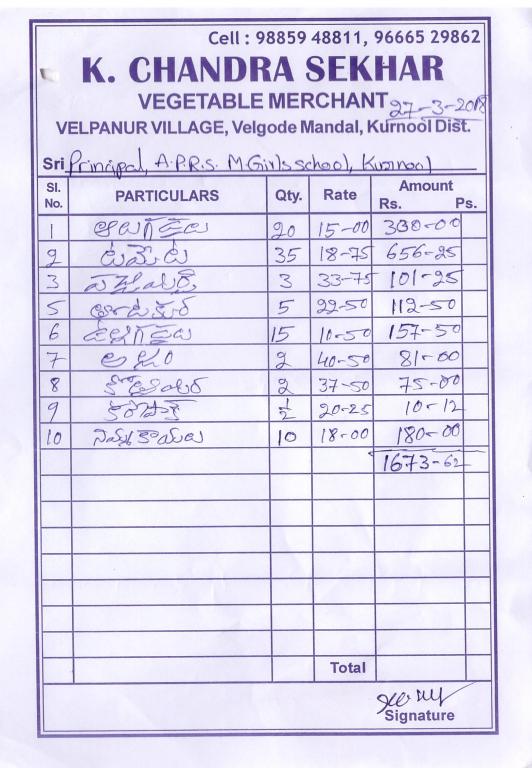 Cell : 98859 48811, 96665 29862
K. CHANDRA SEKHAR
VEGETABLE MERCHANT 27-3-2018
VELPANUR VILLAGE, Velgode Mandal, Kurnool Dist.
Sri Principal, A.P.R.S. M.Girls school, Kurnool
Sl. No. PARTICULARS Qty. Rate Amount Rs. Ps.
1 ఆలుగడ్డలు 20 15-00 300-00
2 టమేట 35 18-75 656-25
3 3 33-75 101-25
5 తోటకూర 5 22-50 112-50
6 ఉల్లిగడ్డలు 15 10-50 157-50
7 అల్లం 2 40-50 81-00
8 2 37-50 75-00
9 కరేపాక్ ½ 20-25 10-12
10 నిమ్మకాయలు 10 18-00 180-00
1673-62
Total
Signature